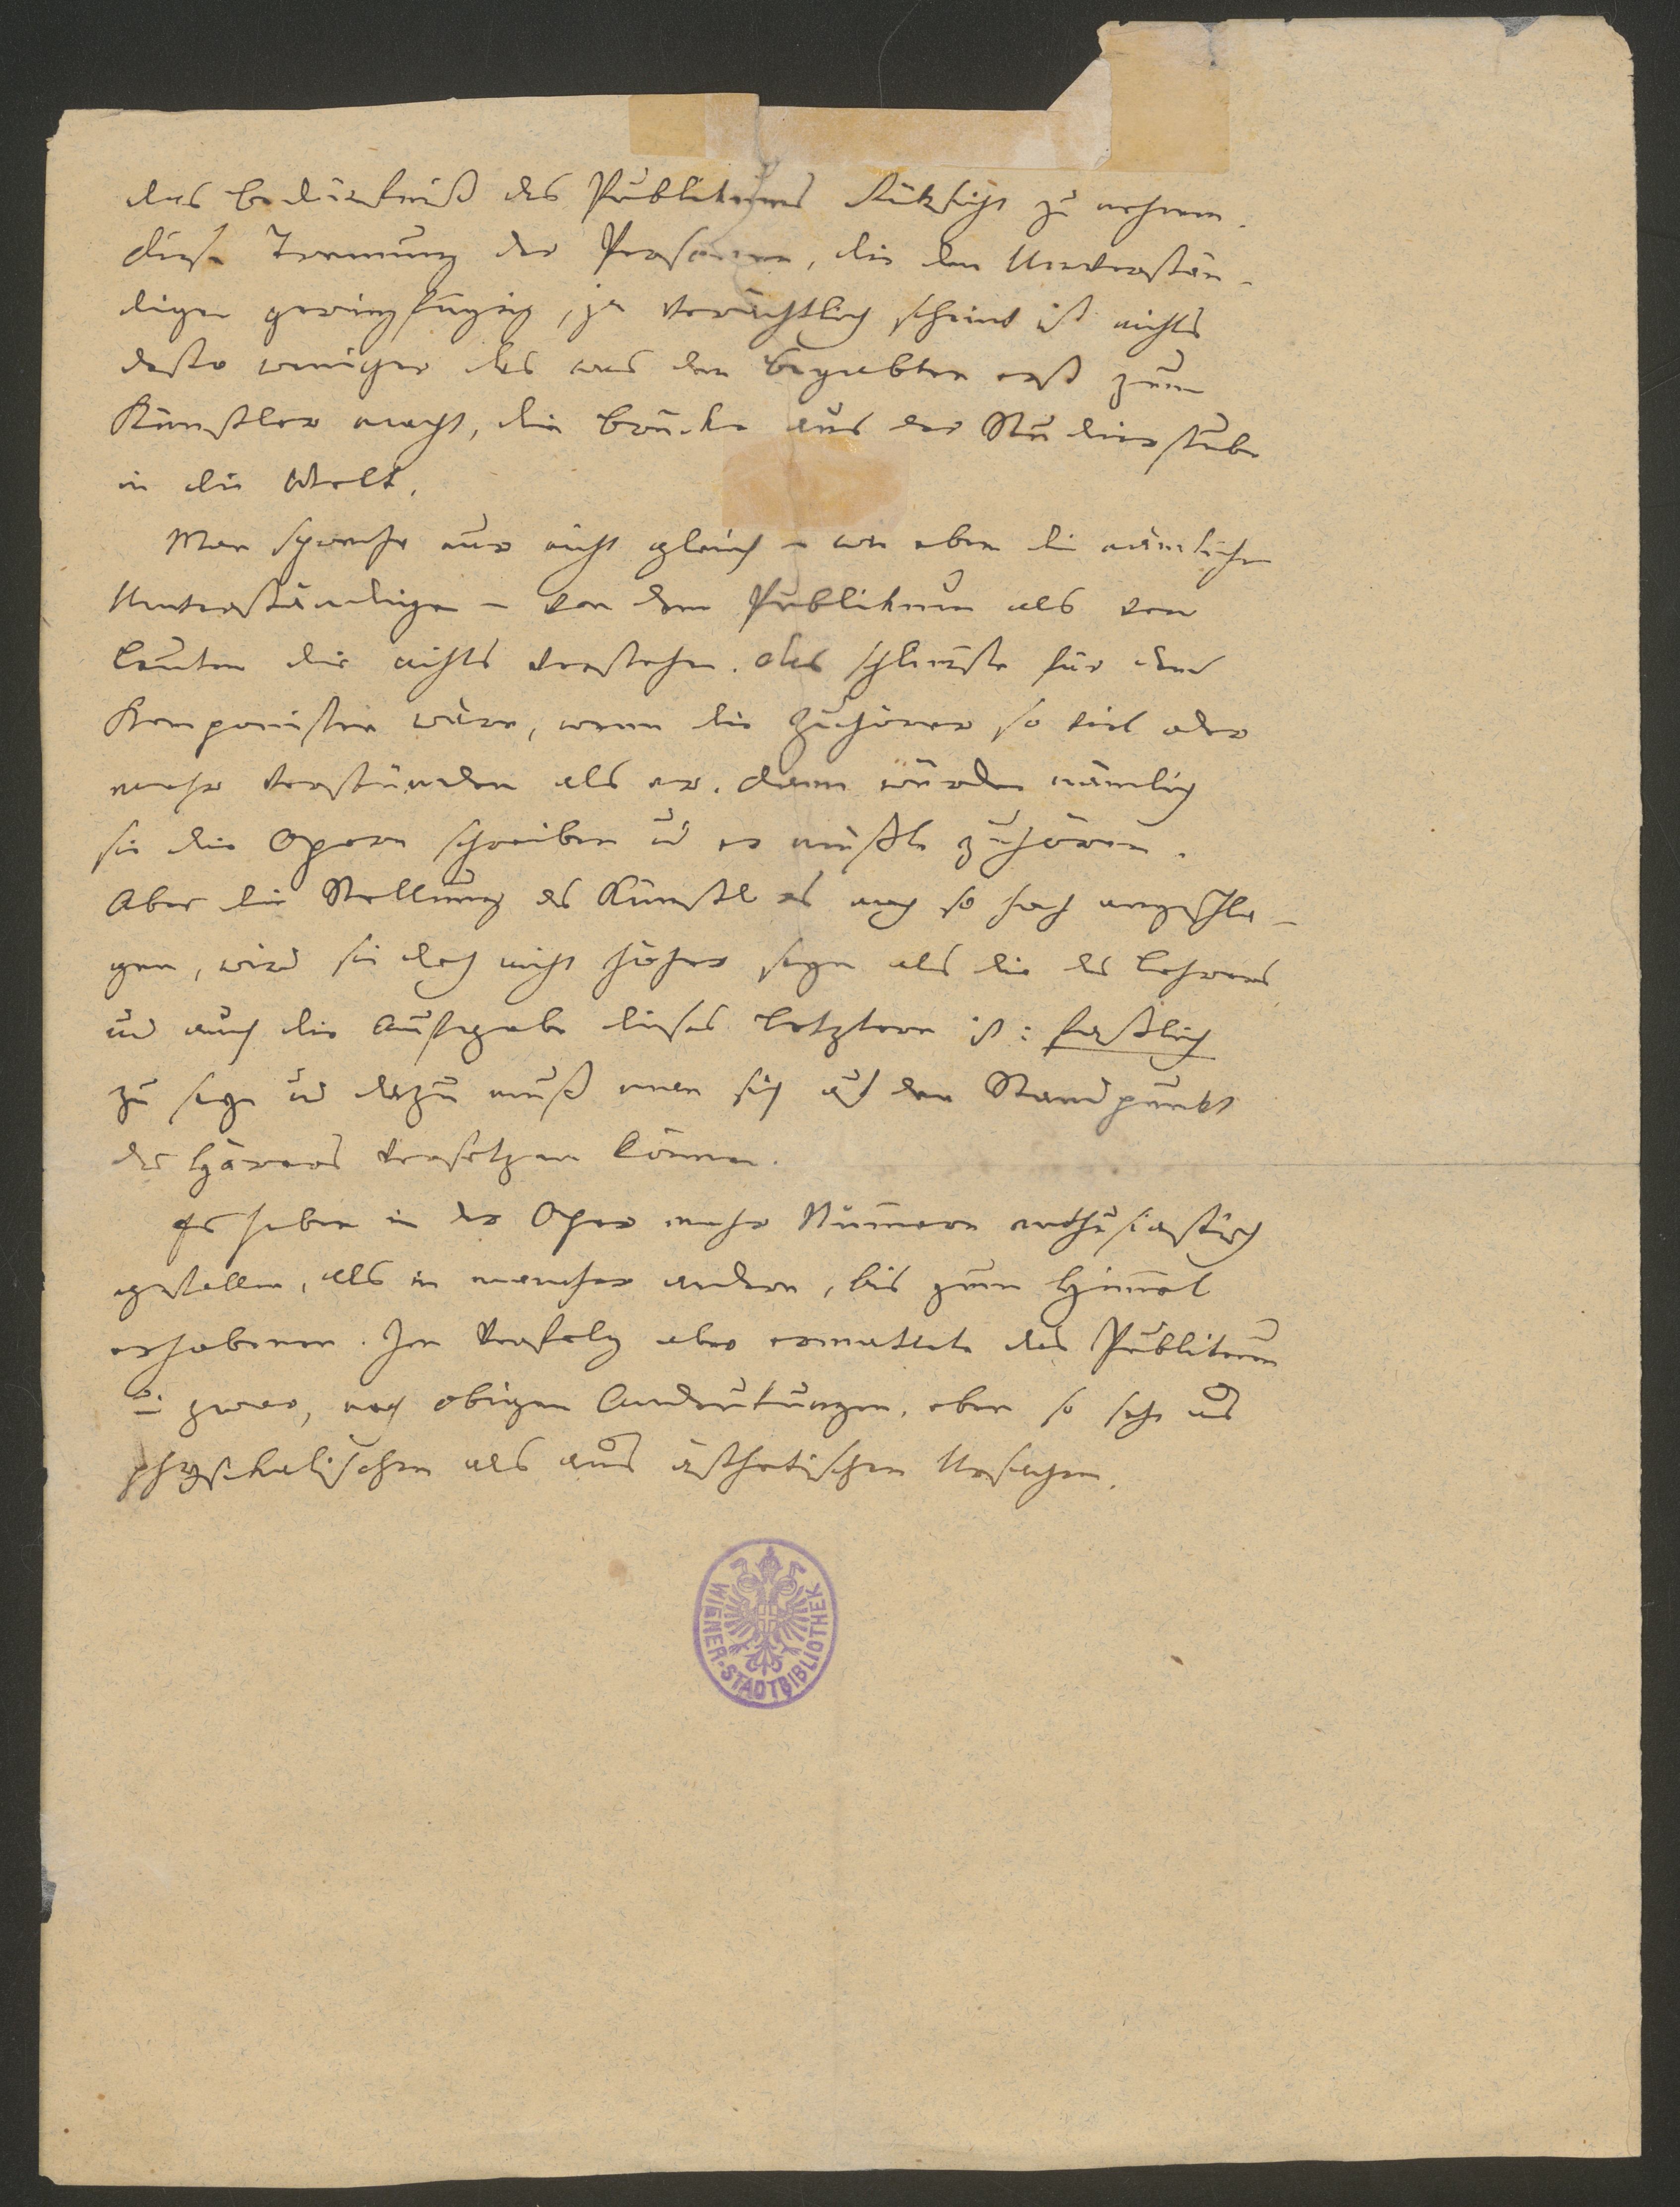 das Bedürfniß des Publikums Rücksicht zu nehmen.
Diese Trennung der Personen, die den Unverstän-
digen geringfügig, ja verächtlich scheint ist nichts
desto weniger das was den Begabten erst zum
Künstler macht, die Brücke aus der Studierstube
in die Welt.
Man spreche nur nicht gleich – wie eben die nämlichen
Unverständigen – von dem Publikum als von
Leuten die nichts verstehen. Das schlimste für den
Komponisten wäre, wenn die Zuhörer so viel oder
mehr verstünden als er. Dann würden nämlich
sie die Opern schreiben u er müßte zuhören.
Aber die Stellung des Künstlers noch so hoch angeschla-
gen, wird sie doch nicht höher seyn als die des Lehrers
und auch die Aufgabe dieses Letztern ist: faßlich
zu seyn und dazu muß man sich auf den Standpunkt
des Hörers versetzen können.
Es haben in der Oper mehr Numern enthusiastisch
gefallen, als in mancher andern, bis zum Himel
erhobenen. Im Verfolg aber ermattete das Publikum
u: zwar, nach obigen Andeutungen, eben so sehr aus
physikalischen als aus ästhetischen Ursachen.
WIENER-STADTBIBLIOTHEK